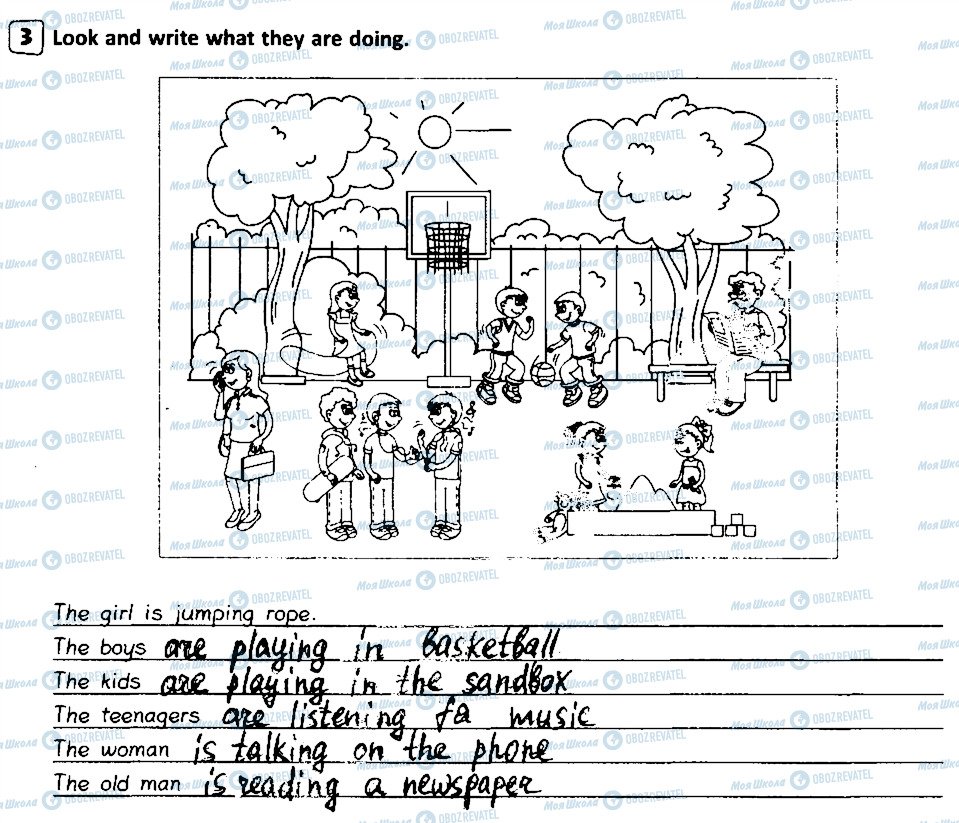 3 Look and write what they are doing.
The girl is jumping rope.
The boys are playing in basketball
The kids are playing in the sandbox
The teenagers are listening ta music
The woman is talking on the phone
The old man is reading a newspaper